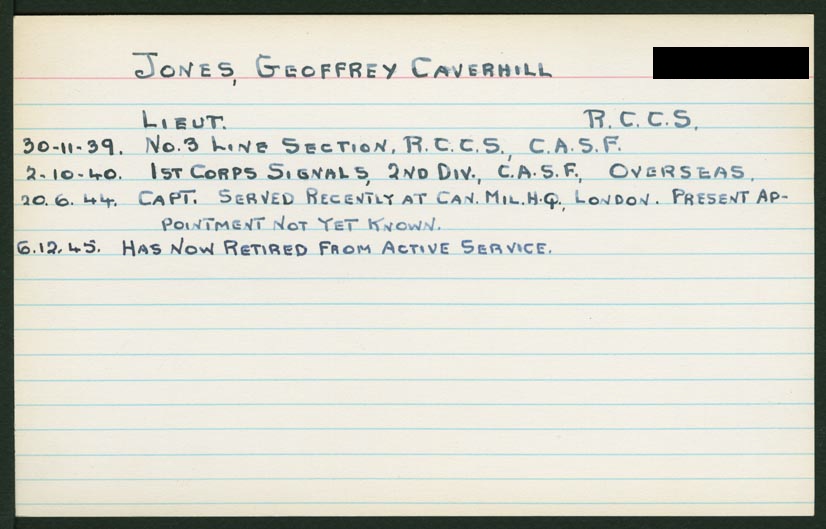 JONES, GEOFFREY CAVERHILL
LIEUT. R.C.C.S.
30-11-39. NO.3 LINE SECTION, R.C.C.S., C.A.S.F.
2-10-40. 1ST CORPS SIGNALS, 2ND DIV., C.A.S.F., OVERSEAS.
20.6.44. CAPT. SERVED RECENTLY AT CAN. MIL.H.Q., LONDON. PRESENT AP-
POINTMENT NOT YET KNOWN.
6.12.45. HAS NOW RETIRED FROM ACTIVE SERVICE.